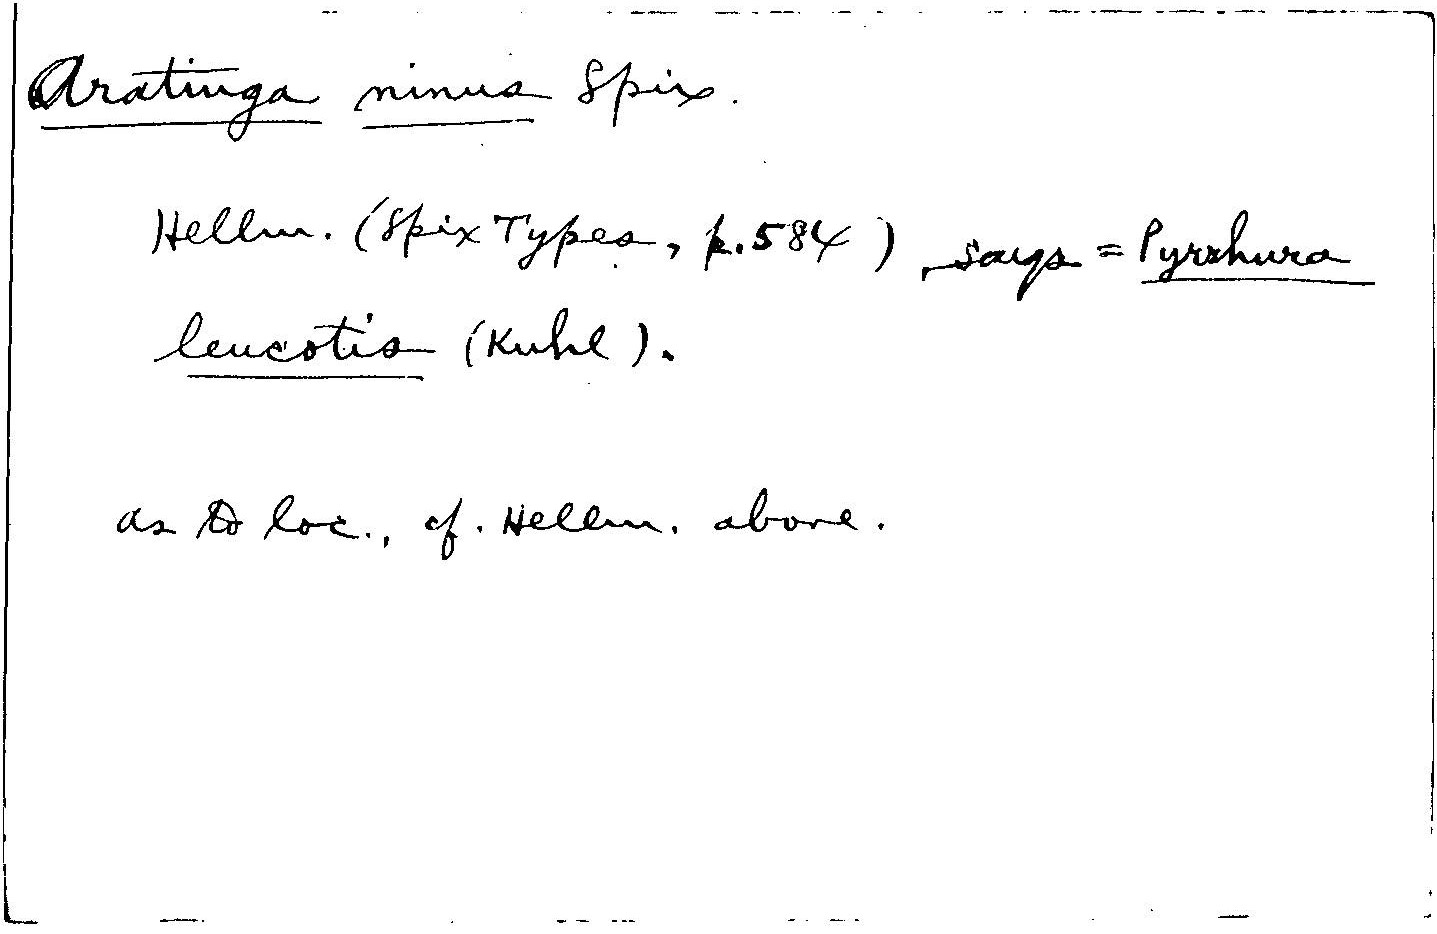 Aratinga ninus Spix.
Hellm. (Spix Types, p. 584), says = Pyrrhura
leucotis (Kuhl).
as to loc., cf. Hellm. above.